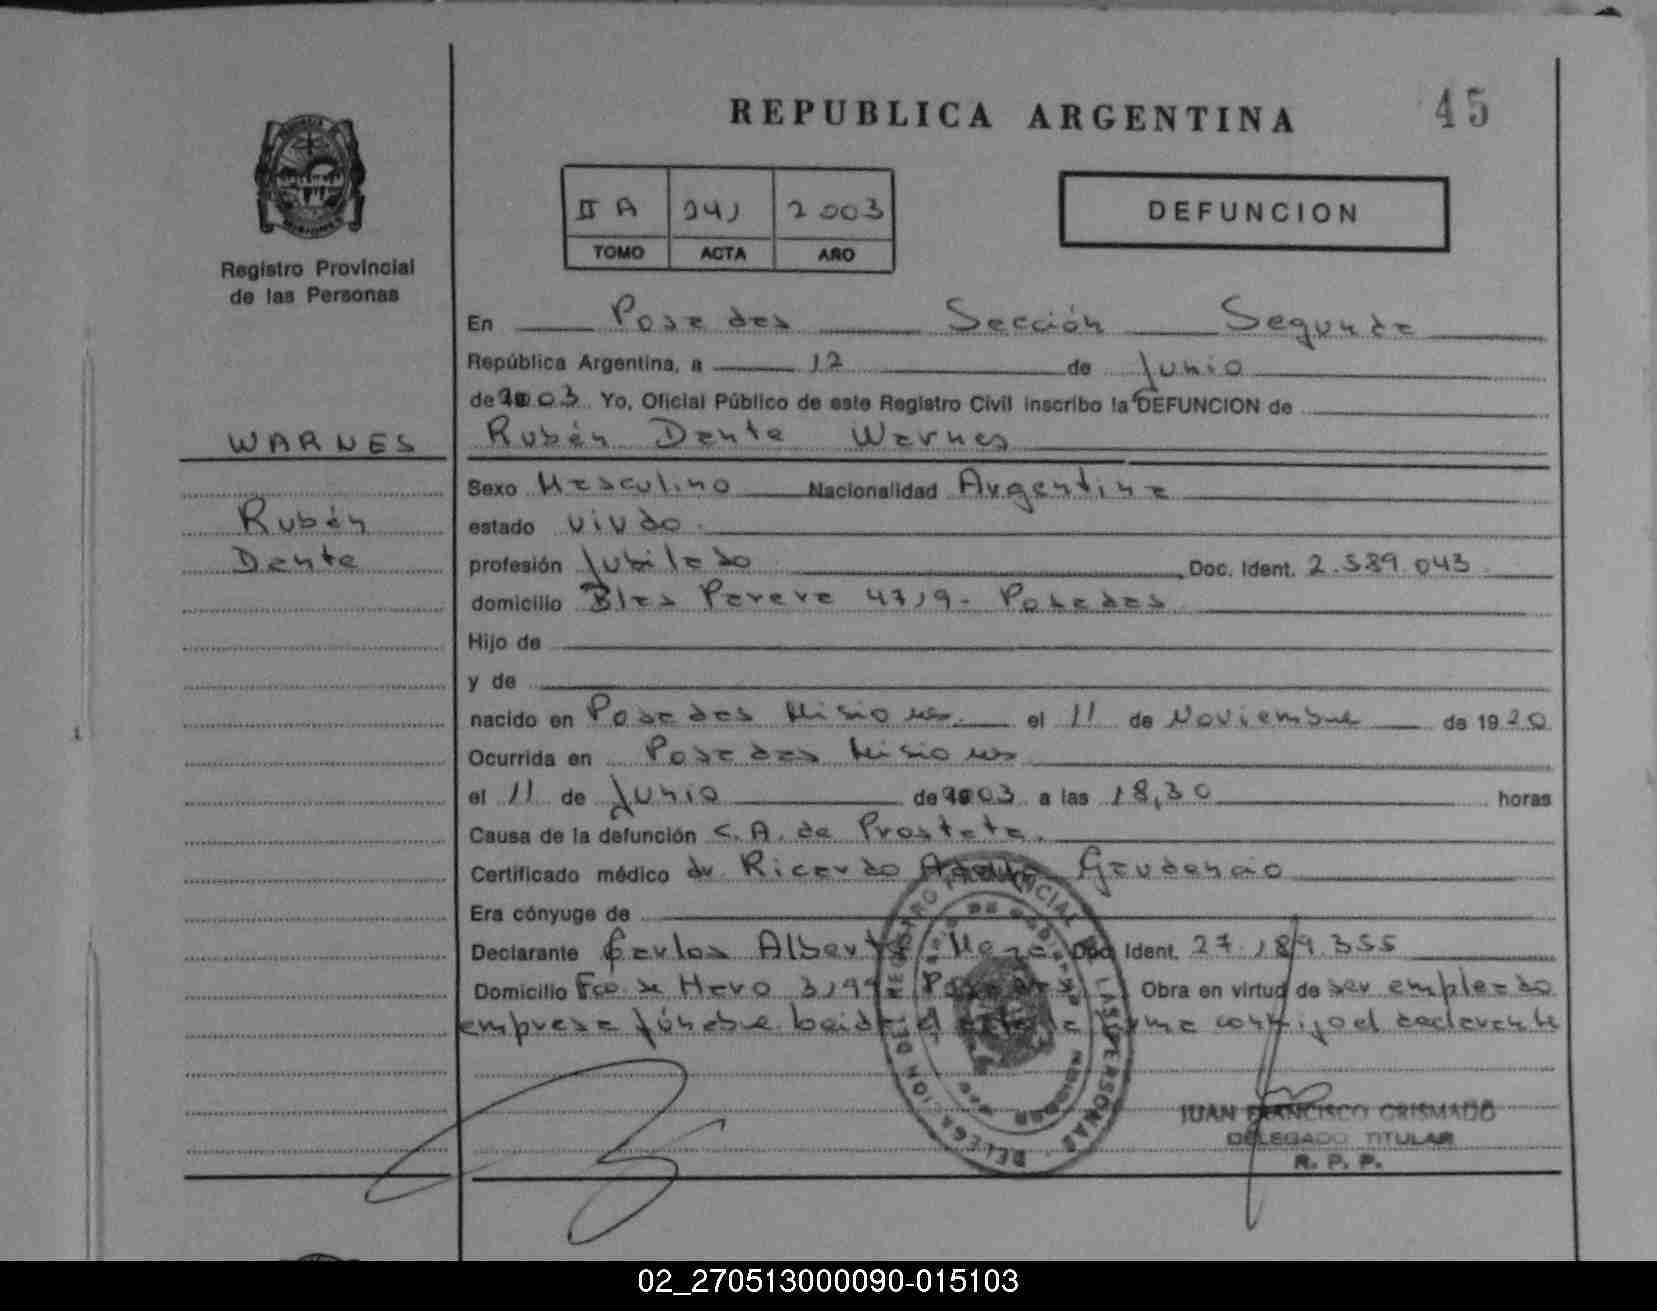 REPUBLICA ARGENTINA
45
Registro Provincial
de las Personas
II A 2003
TOMO ACTA AÑO
DEFUNCION
En Posadas Sección Segunda
República Argentina, a 12 de Junio
de 2003 Yo, Oficial Público de este Registro Civil inscribo la DEFUNCION de
WARNES
Rubén Dante
Rubén Dante Warnes
Sexo Masculino Nacionalidad Argentina
estado viudo.
profesión Jubilado Doc. Ident. 2.589.043
domicilio Blas Parera 4719 - Posadas
Hijo de
y de
nacido en Posadas Misiones el 11 de Noviembre de 1920
Ocurrida en Posadas Misiones
el 11 de Junio de 2003 a las 18,30 horas
Causa de la defunción C.A. de Prostata.
Certificado médico dr Ricardo Gaudencio
Era cónyuge de
Declarante Carlos Alberto Doc. Ident. 27.189.355
Domicilio Fco. de Haro Obra en virtud de ser empleado
empresa fúnebre. conmigo el declarante
REGISTRO PROVINCIAL DE LAS PERSONAS
DELEGACION
JUAN FRANCISCO GRISMADO
DELEGADO TITULAR
R. P. P.
02_270513000090-015103